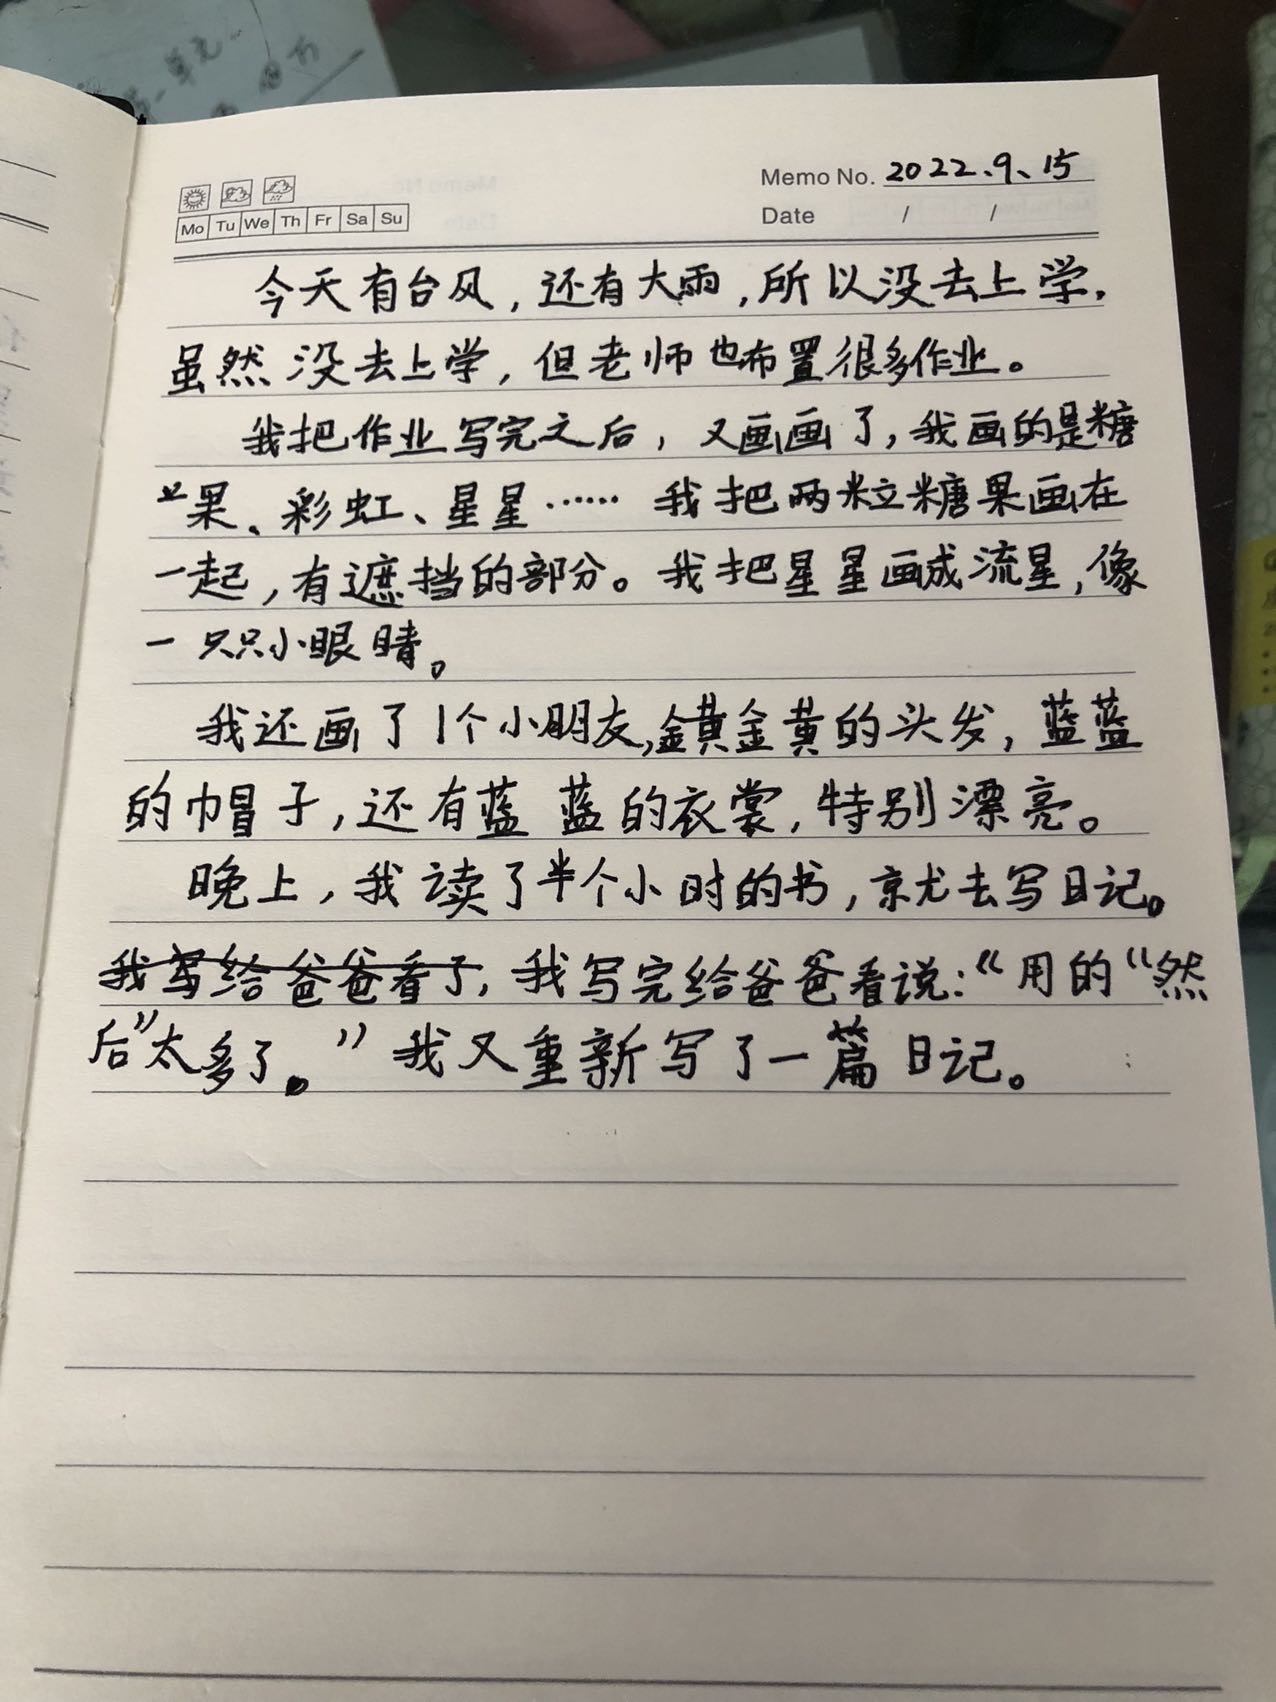 第一单元
Mo Tu We Th Fr Sa Su
Memo No. 2022.9.15
Date / /
今天有台风，还有大雨，所以没去上学，
虽然没去上学，但老师也布置很多作业。
我把作业写完之后，又画画了，我画的是糖
果、彩虹、星星……我把两粒糖果画在
一起，有遮挡的部分。我把星星画成流星，像
一只只小眼睛。
我还画了1个小朋友，金黄金黄的头发，蓝蓝
的帽子，还有蓝蓝的衣裳，特别漂亮。
晚上，我读了半个小时的书，就去写日记。
我写给爸爸看了，我写完给爸爸看说：“用的“然
后”太多了。”我又重新写了一篇日记。